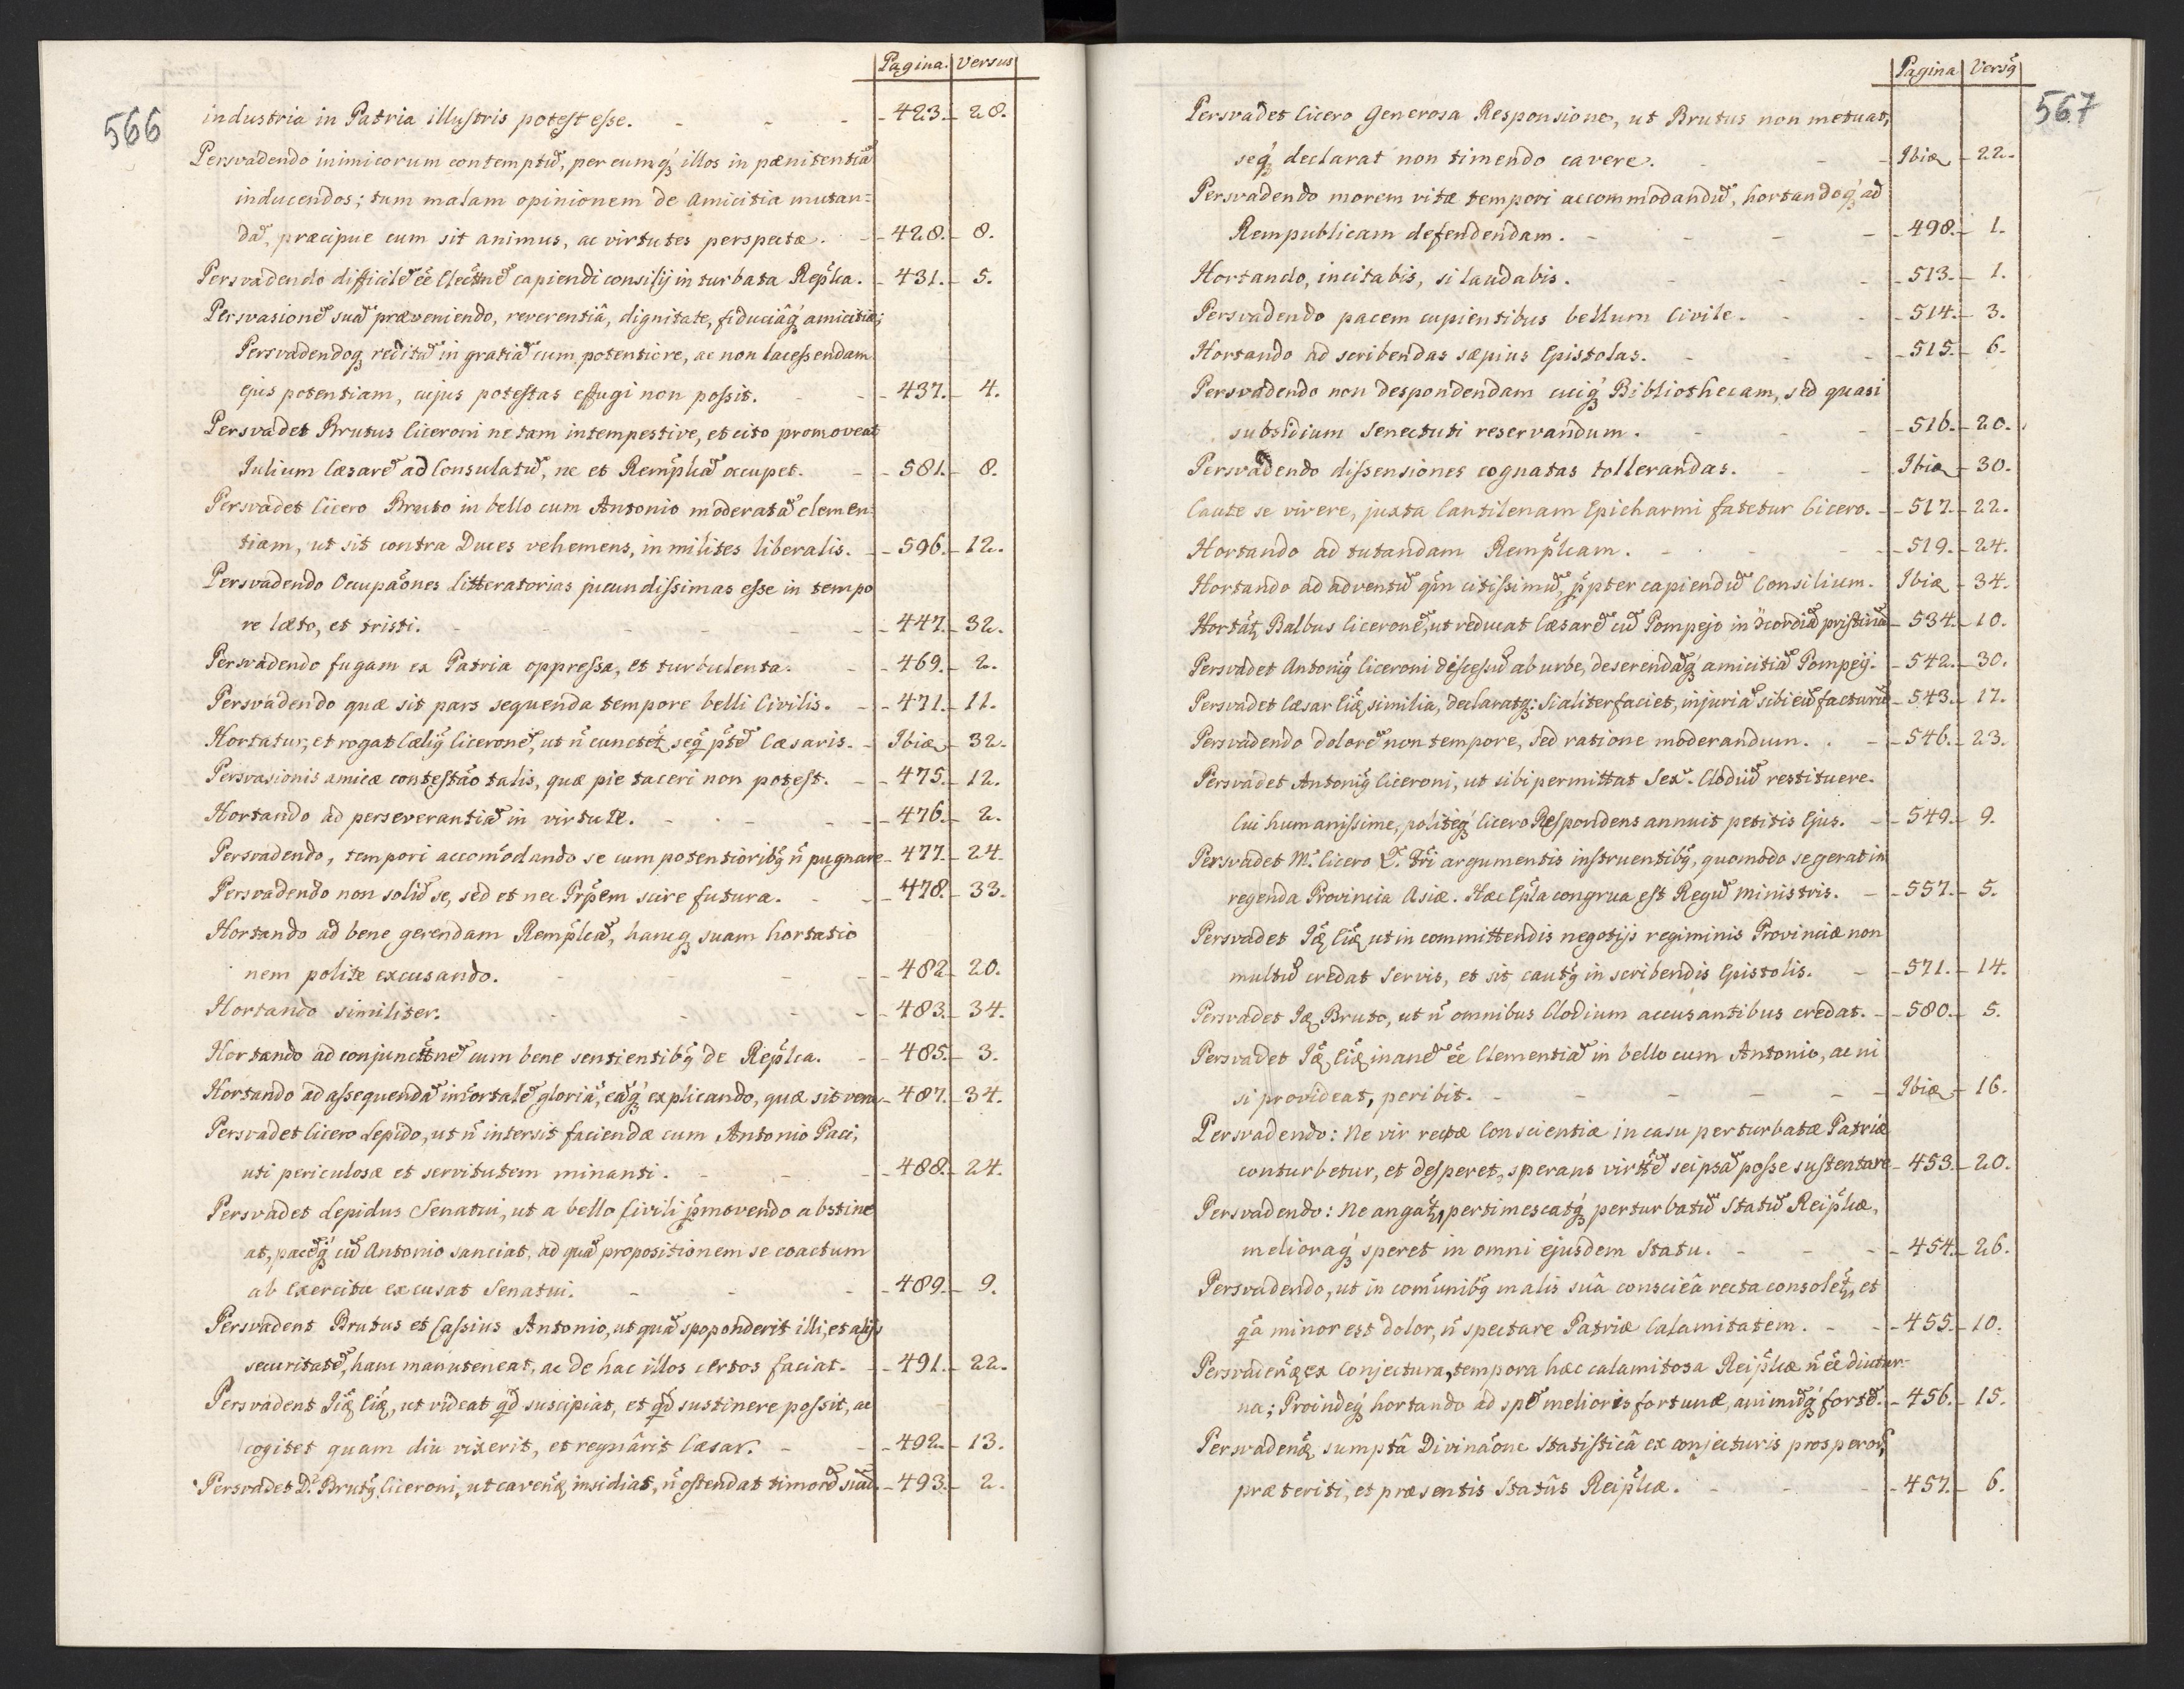 Pagina. Versus
566
industria in Patria illustris potest esse. - 423. - 28.
Persvadendo inimicorum contemptũ, per eumq́ illos in pænitentiã
inducendos; tum malam opinionem de Amicitia mutan=
dã, præcipue cum sit animus, ac virtutes perspectæ. - 428. - 8.
Persvadendo difficilẽ eẽ Elect̃nẽ capiendi consilij in turbata Rep̃lca. - 431. - 5.
Persvasionẽ suã præveniendo, reverentiâ, dignitate, fiduciâq́ amicitiæ;
Persvadendoq́ reditũ in gratiã cum potentiore, ac non lacessendam
ejus potentiam, cujus potestas effugi non possit. - 437. - 4.
Persvadet Brutus Ciceroni ne tam intempestive, et cito promoveat
Iulium Cæsarẽ ad Consulatũ, ne et Remp̃lcã occupet. - 581. - 8.
Persvadet Cicero Bruto in bello cum Antonio moderatã clemen=
tiam, ut sit contra Duces vehemens, in milites liberalis. - 596. - 12.
Persvadendo Occupãones litteratorias jucundissimas esse in tempo
re læto, et tristi. - 447. - 32.
Persvadendo fugam ex Patria oppressa, et turbulenta. - 469. - 2.
Persvadendo quæ sit pars sequenda tempore belli Civilis. - 471. - 11.
Hortatur, et rogat Cæliq̃ Ciceronẽ, ut ñ cunctet̃, seq̃ p̃tẽ Cæsaris. - Ibiæ - 32.
Persvasionis amicæ contestão talis, quæ pie taceri non potest. - 475. - 12.
Hortando ad perseverantiã in virtute. - 476. - 2.
Persvadendo, tempori accom̃odando se cum potentiorib̃q ñ pugnare - 477. - 24.
Persvadendo non solũ se, sed et nec Pr̃pem scire futura. - 478. - 33.
Hortando ad bene gerendam Remp̃lcã, hancq́ suam hortatio
nem polite excusando. - 482 - 20.
Hortando similiter. - 483. - 34.
Hortando ad conjunct̃nẽ cum bene sentientib̃q de Rep̃lca. - 485. - 3.
Hortando ad assequendã im̃ortalẽ gloriã, eãq́ explicando, quæ sit vera - 487. - 34.
Persvadet Cicero Lepido, ut ñ intersit faciendæ cum Antonio Paci,
uti periculosæ et servitutem minanti. - 488. - 24.
Persvadet Lepidus Senatui, ut a bello Civili p̃movendo abstine
at, pacẽq́ cũ Antonio sanciat, ad quã propositionem se coactum
ab Exercitu excusat Senatui. - 489. - 9.
Persvadent Brutus et Cassius Antonio, ut quã spoponderit illi, et alijs
securitatẽ, hanc manuteneat, ac de hac illos certos faciat. - 491. - 22.
Persvadent Iiq̃ Eiq̃, ut videat q̃d suscipiat, et q̃d sustinere possit, ac
cogitet quam diu vixerit, et regnârit Cæsar. - 492. - 13.
Persvadet D. Brutq̃ Ciceroni, ut caveñq insidias, ñ ostendat timorẽ suũ. - 493. - 2.
Pagina Versq̃
567
Persvadet Cicero Generosa Responsione, ut Brutus non metuat,
seq́ declarat non timendo cavere. - Ibiæ - 22.
Persvadendo morem vitæ tempori accommodandũ, hortandoq́ ad
Rempublicam defendendam. - 498. - 1.
Hortando, incitabis, si laudabis. - 513. - 1.
Persvadendo pacem cupientibus bellum Civile. - 514. - 3.
Hortando ad scribendas sæpius Epistolas. - 515. - 6.
Persvadendo non despondendam cuiq́ Bibliothecam, sed quasi
subsidium Senectuti reservandum. - 516. - 20.
Persvadendo dissensiones cognatas tollerandas. - Ibiæ - 30.
Caute se vivere, juxta Cantilenam Epicharmi fatetur Cicero. - 517. - 22.
Hortando ad tutandam Remp̃lcam. - 519. - 24.
Hortando ad adventũ q̃m citissimũ, p̃pter capiendũ Consilium. - Ibiæ - 34.
Hortat̃ Balbus Ciceronẽ, ut reducat Cæsarẽ cũ Pompejo in ɔcordiã pristinã - 534. - 10.
Persvadet Antoniq̃ Ciceroni discessũ ab urbe, deserendãq́ amicitiã Pompeij. - 542. - 30.
Persvadet Cæsar Eiq̃ similia, declaratq́: Si aliter faciet, injuriã sibi eũ facturũ - 543. - 17.
Persvadendo dolorẽ non tempore, sed ratione moderandum. - 546. - 23.
Persvadet Antoniq̃ Ciceroni, ut sibi permittat Sex. Clodiũ restituere.
Cui humanissime, politeq́ Cicero Respondens annuit petitis Ejus. - 549. - 9.
Persvadet M. Cicero Q. Fr̃i argumentis instruentib̃q, quomodo se gerat in
regenda Provincia Asiæ. Hæc Ep̃la congrua est Regũ Ministris. - 557. - 5.
Persvadet Iq̃ Eiq̃ ut in committendis negotijs regiminis Provinciæ non
multũ credat Servis, et sit cautq̃ in scribendis Epistolis. - 571. - 14.
Persvadet Iq̃ Bruto, ut ñ omnibus Clodium accusantibus credat. - 580. - 5.
Persvadet Iq̃ Eiq̃ inanẽ eẽ Clementiã in bello cum Antonio, ac ni
si provideat, peribit. - Ibiæ - 16.
Persvadendo: Ne vir rectæ Conscientiæ in casu perturbatæ Patriæ
conturbetur, et desperet, sperans virtt̃ẽ seipsã posse sustentare - 453. - 20.
Persvadendo: Ne angat̃, pertimescatq́ perturbatũ Statũ Reip̃lcæ,
melioraq́ speret in omni ejusdem Statu. - 454. - 26.
Persvadendo, ut in com̃unib̃q malis suâ consciẽâ recta consolet̃, et
q̃a minor est dolor, ñ spectare Patriæ Calamitatem. - 455. - 10.
Persvadeñq ex Conjectura, tempora hæc calamitosa Reip̃lcæ ñ eẽ diutur=
na; Proindeq́ hortando ad spẽ melioris fortunæ, animũq́ fortẽ. - 456. - 15.
Persvadeñq sumptâ Divinãone Statisticâ ex conjecturis prosperor̃,
præteriti, et præsentis Statûs Reip̃lcæ. - 457. - 6.